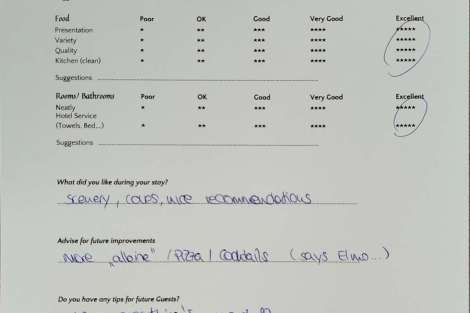 Food Poor OK Good Very Good Excellent
Presentation * ** *** **** *****
Variety * ** *** **** *****
Quality * ** *** **** *****
Kitchen (clean) * ** *** **** *****
Suggestions
Rooms/ Bathrooms Poor OK Good Very Good Excellent
Neatly * ** *** **** *****
Hotel Service
(Towels, Bed...) * ** *** **** *****
Suggestions
What did you like during your stay?
scenery, nice recommendations
Advise for future improvements
more / Pizza / Cocktails (says Elmo...)
Do you have any tips for future Guests?